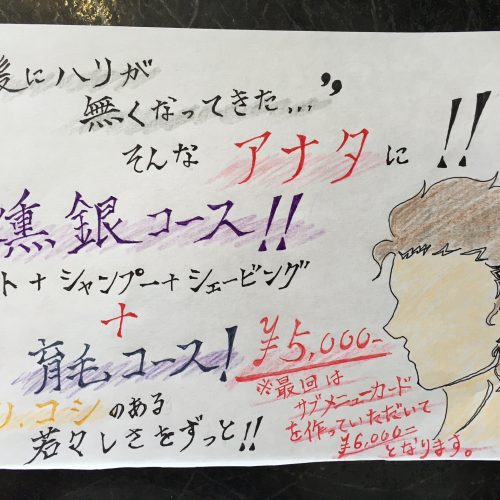 後にハリが
無くなってきた…”
そんな アナタに!!
燻銀コース!!
ト+シャンプー+シェービング
+
育毛、コース! ¥5,000-
リ、コシのある
若々しさをずっと!!
※最回は
サブメニューカード
を作っていただいて
¥6,000-
となります。